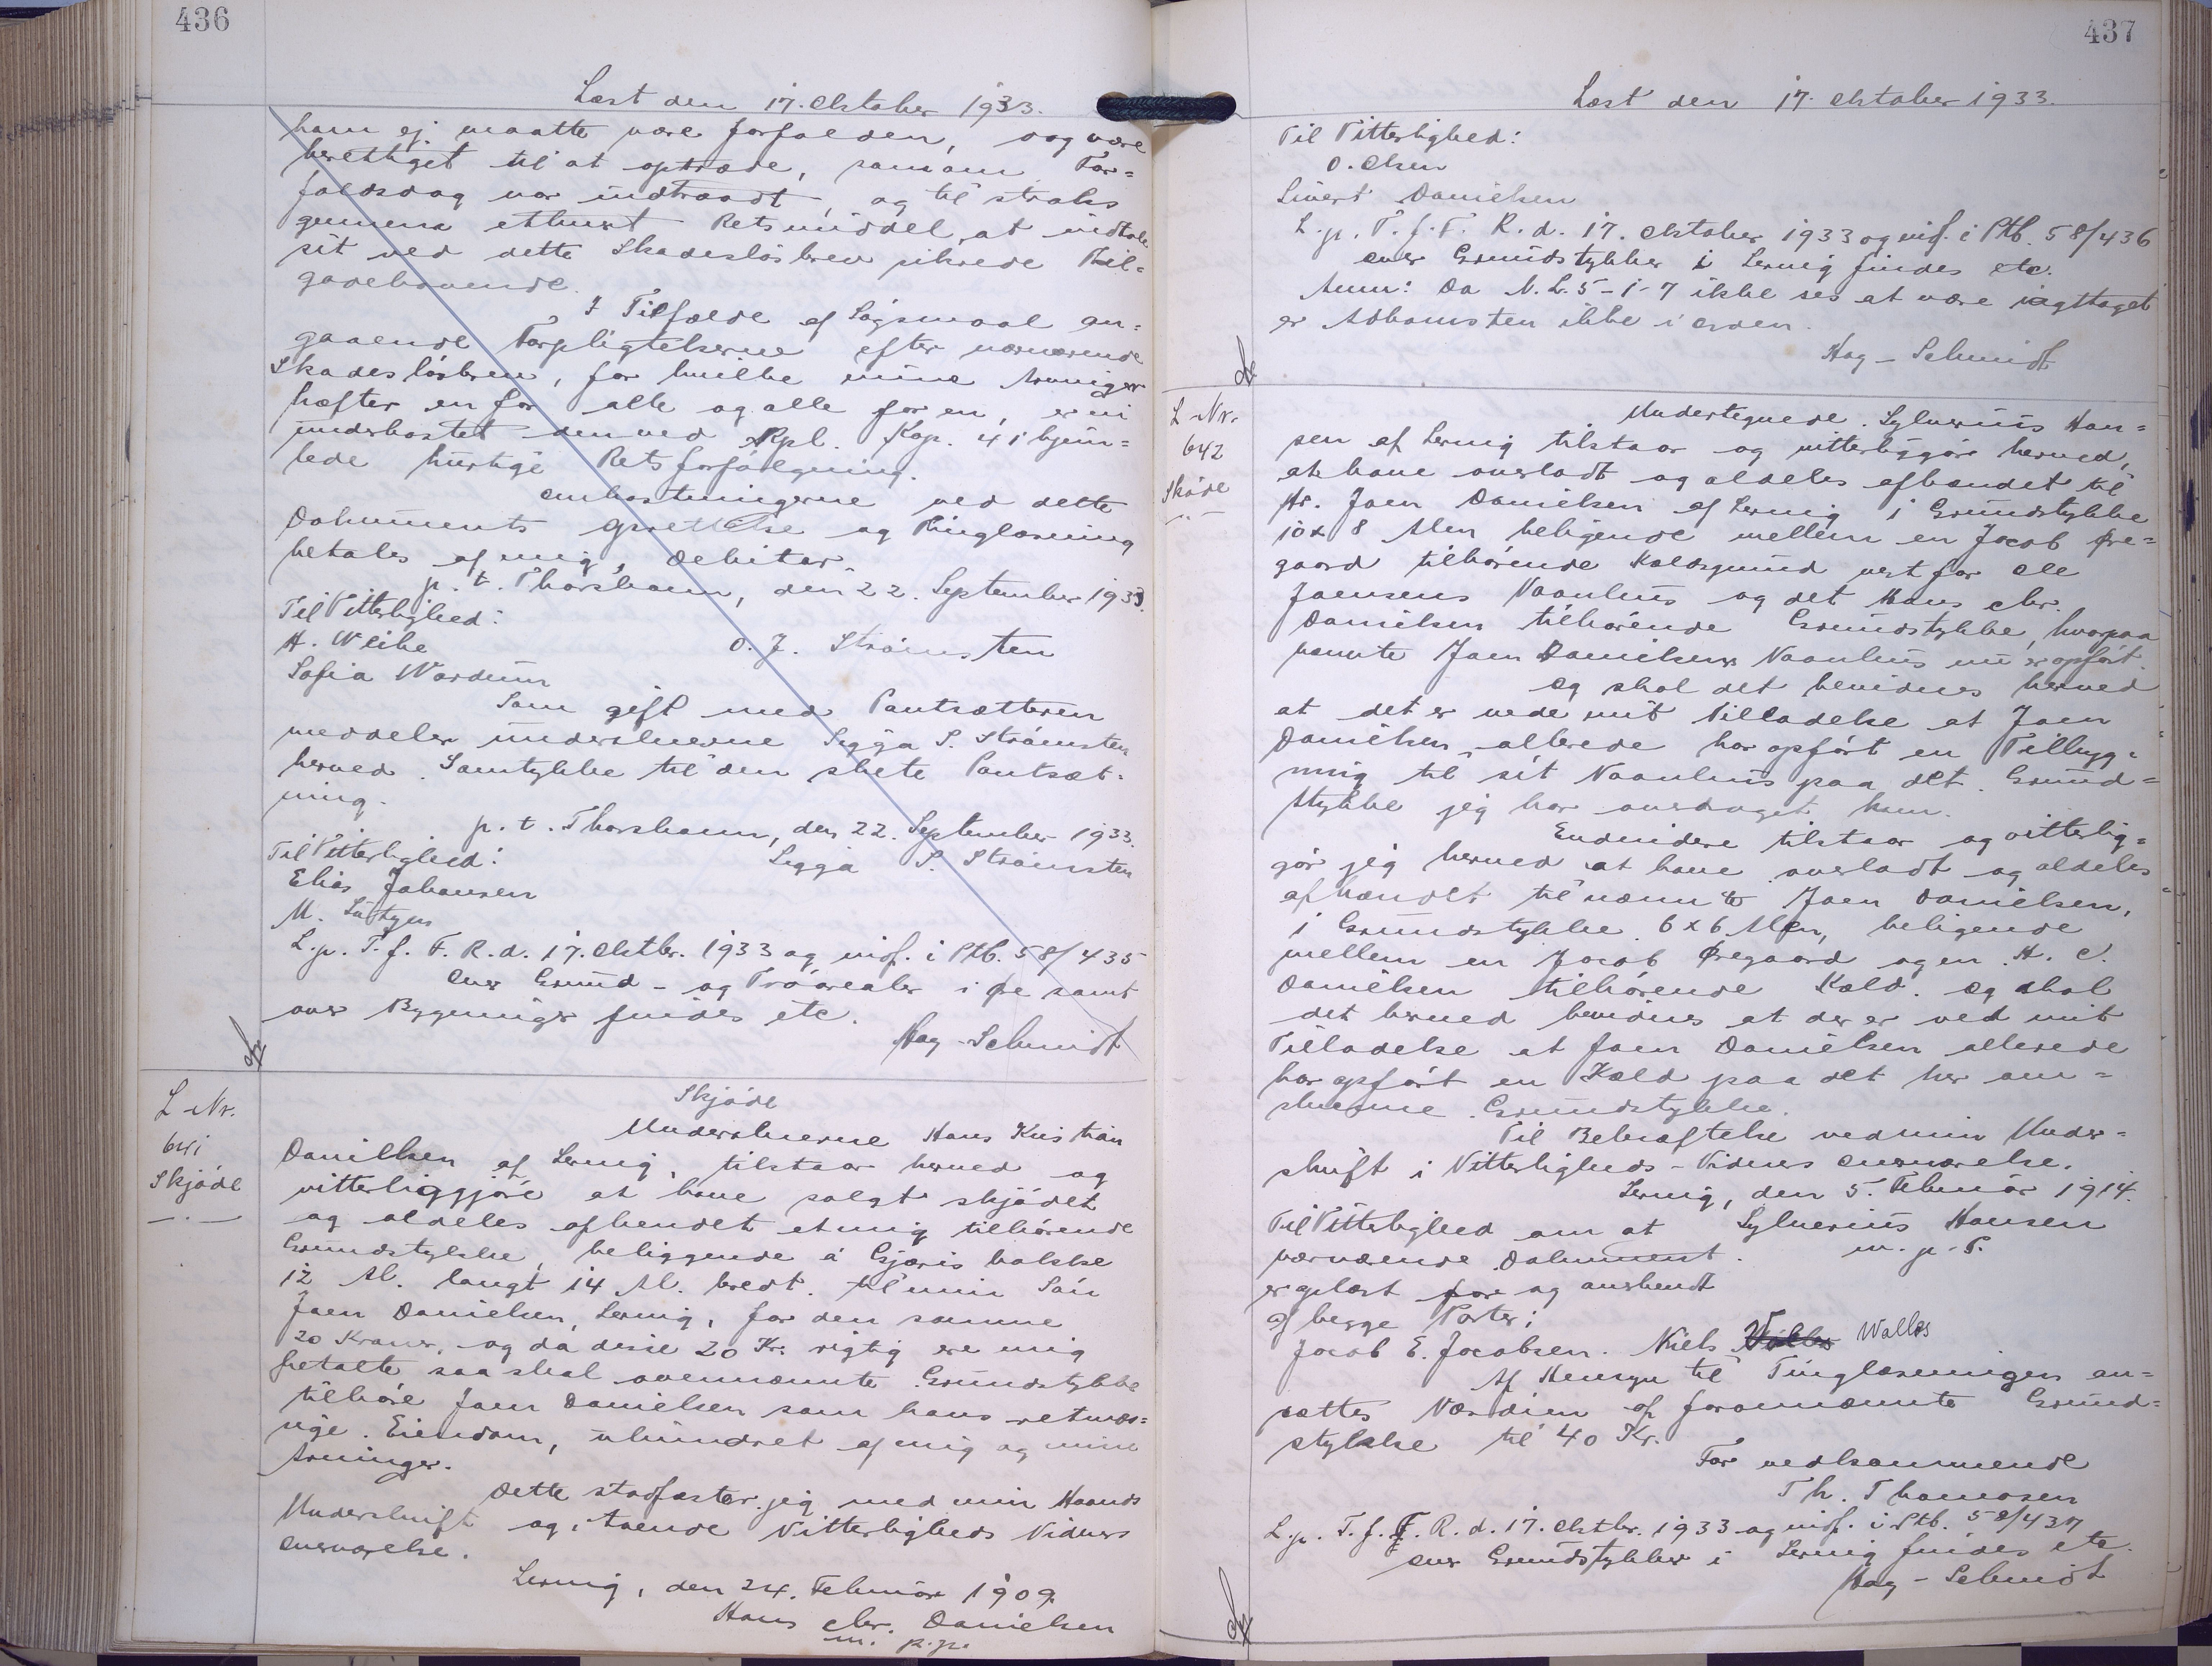 436
Læst den 17. Oktober 1933.
ham ej maatte være forfalden, dog være
berettiget til at optræde, somom For=
faldsdag var indtraadt, og til straks
gennem ethvert Retsmiddel at indtale
sit ved dette Skadesløsbrev sikrede Til=
godehavende.
I Tilfælde af Søgsmaal an=
gaaende Forpligtelserne efter nærværende
Skadesløsbrev, for hvilke mine Arvinger
hæfter en for alle og alle for en, er vi
underkastet den ved Rpl. Kap. 41 hjem=
lede hurtige Retsforfølgning.
Omkostningerne ved dette
Dokuments Oprettelse og Tinglæsning
betales af mig, Debitor.
p. t. Thorshavn, den 22. September 1933.
Til Vitterlighed:
H. Weihe
O. J. Strømsten
Sofia Wardum
Som gift med Pantsætteren
meddeler underskrevne Sigga S. Strømsten
herved Samtykke til den skete Pantsæt=
ning.
p. t. Thorshavn, den 22. September 1933.
Til Vitterlighed:
Sigga S. Strømsten
Elias Johansen
M. Lütgen
L. p. T. f. F. R. d. 17. Oktbr. 1933 og indf. i Ptb. 58/435
Over Grund- og Tróarealer i Øe samt
over Bygninger findes etc.
Hag-Schmidt
L Nr.
641
Skjøde
Skjøde
Underskrevne Hans Kristian
Danielsen af Lervig, tilstaar herved og
vitterliggjøre at have solgt skjødet
og aldeles afhendet et mig tilhørende
Grundstykke, beliggende á Gjøris bakke
12 Al. langt 14 Al. bredt til min Søn
Joen Danielsen, Lervig, for den somme
20 Kroner, og da disse 20 Kr. rigtig ere mig
betalte saa skal ovennævnte Grundstykke
tilhøre Joen Danielsen som hans retmæs=
sige Eiendom, uhindret af mig og mine
Arvinger.
Dette stadfæster jeg med min Haands
Underskrift og i tvende Vitterligheds Vidners
Overværelse.
Lervig, den 24. Februar 1909.
Hans Chr. Danielsen
m. p. p.
437
Læst den 17. Oktober 1933.
Til Vitterlighed:
O. Olsen
Sivert Danielsen
L. p. T. f. F. R. d. 17. Oktober 1933 og indf. i Ptb. 58/436
over Grundstykker i Lervig findes etc.
Anm: Da N. L. 5-1-7 ikke ses at være iagttaget
er Adkomsten ikke i Orden.
Hag-Schmidt
L Nr.
642
Skøde
Undertegnede Sylverius Han=
sen af Lervig tilstaar og vitterliggør herved,
at have overladt og aldeles afhændet til
Hr. Joen Danielsen af Lervig 1 Grundstykke
10 x 8 Alen beligende mellem en Jacob Øre=
gaard tilhørende Kaldsgrund vest for Ole
Joensens Vaanhus og det Hans Chr.
Danielsen tilhørende Grundstykke, hvorpaa
nævnte Joen Danielsens Vaanhus nu er opført.
Og skal det bevidnes herved
at det er vede mit Tilladelse at Joen
Danielsen allerede har opført en Tilbyg=
ning til sit Vaanhus paa det Grund=
stykke jeg har overdraget ham.
Endvidere tilstaar og vitterlig=
gør jeg herved at have overladt og aldeles
afhændet til nævnte Joen Danielsen,
1 Grundstykke 6 x 6 Alen, beligende
mellem en Jacob Øregaard og en H. C.
Danielsen tilhørende Kald. Og skal
det herved bevidnes at der er ved mit
Tilladelse at Joen Danielsen allerede
har opført en Kæld paa det her om=
skrevne Grundstykke.
Til Bekræftelse ved min Under=
skrift i Vitterligheds-Vidners Overværelse.
Lervig, den 5. Februar 1914.
Til Vitterlighed om at
Sylverius Hansen
nærværende Dokument
m. p. P.
er oplæst for og anerkendt
af begge Parter;
Jacob E. Jacobsen. Niels Walles
Af Hensyn til Tinglæsningen an=
sættes Værdien af forannævnte Grund=
stykke til 40 Kr.
For vedkommende
Th. Thomasen
L. p. T. f. F. R. d. 17. Oktbr. 1933 og indf. i Ptb. 58/437
over Grundstykker i Lervig findes etc.
Hag-Schmidt